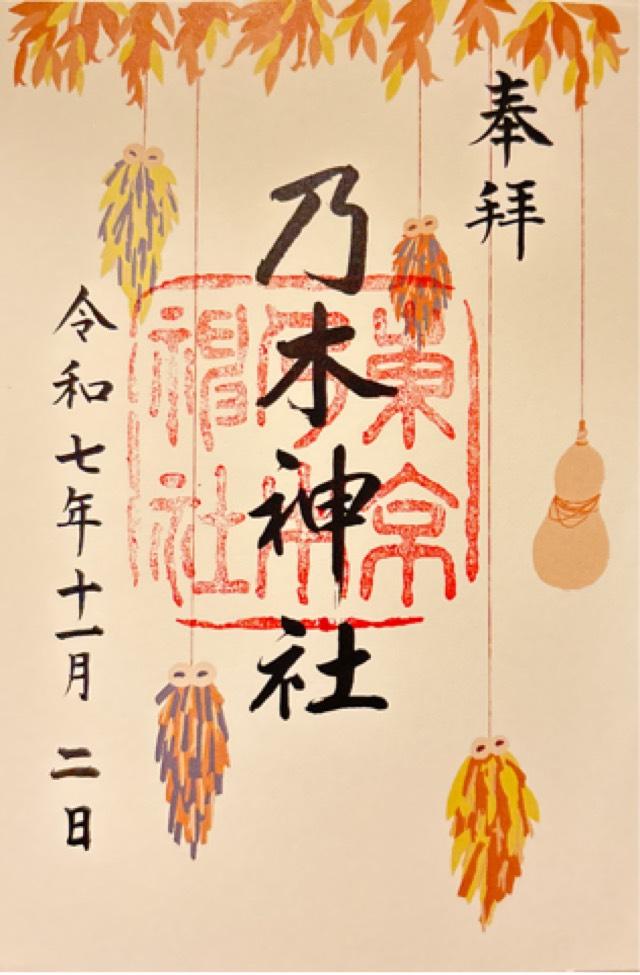 奉拝
乃木神社
東京乃木神社
令和七年十一月二日